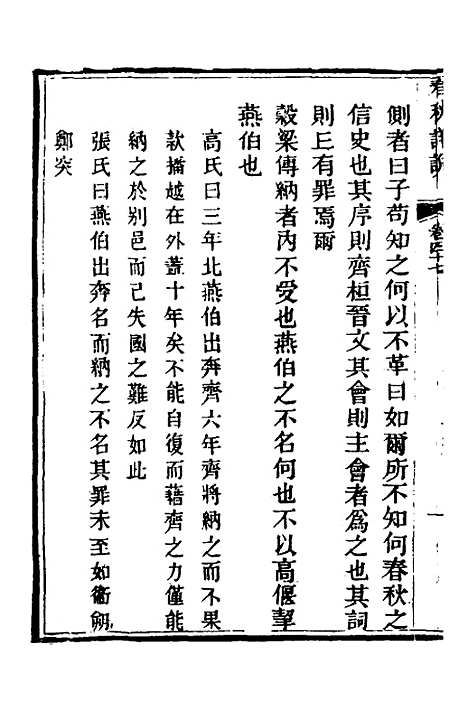 春秋詳說
卷四十七
側者曰子苟知之何以不革曰如爾所不知何春秋之
信史也其序則齊桓晉文其會則主會者為之也其詞
則丘有罪焉爾
穀梁傳納者內不受也燕伯之不名何也不以高偃挈
燕伯也
高氏曰三年北燕伯出奔齊六年齊將納之而不果
款播越在外蓋十年矣不能自復而藉齊之力僅能
納之於別邑而已失國之難反如此
張氏曰燕伯出奔名而納之不名其罪未至如衛朔
鄭突